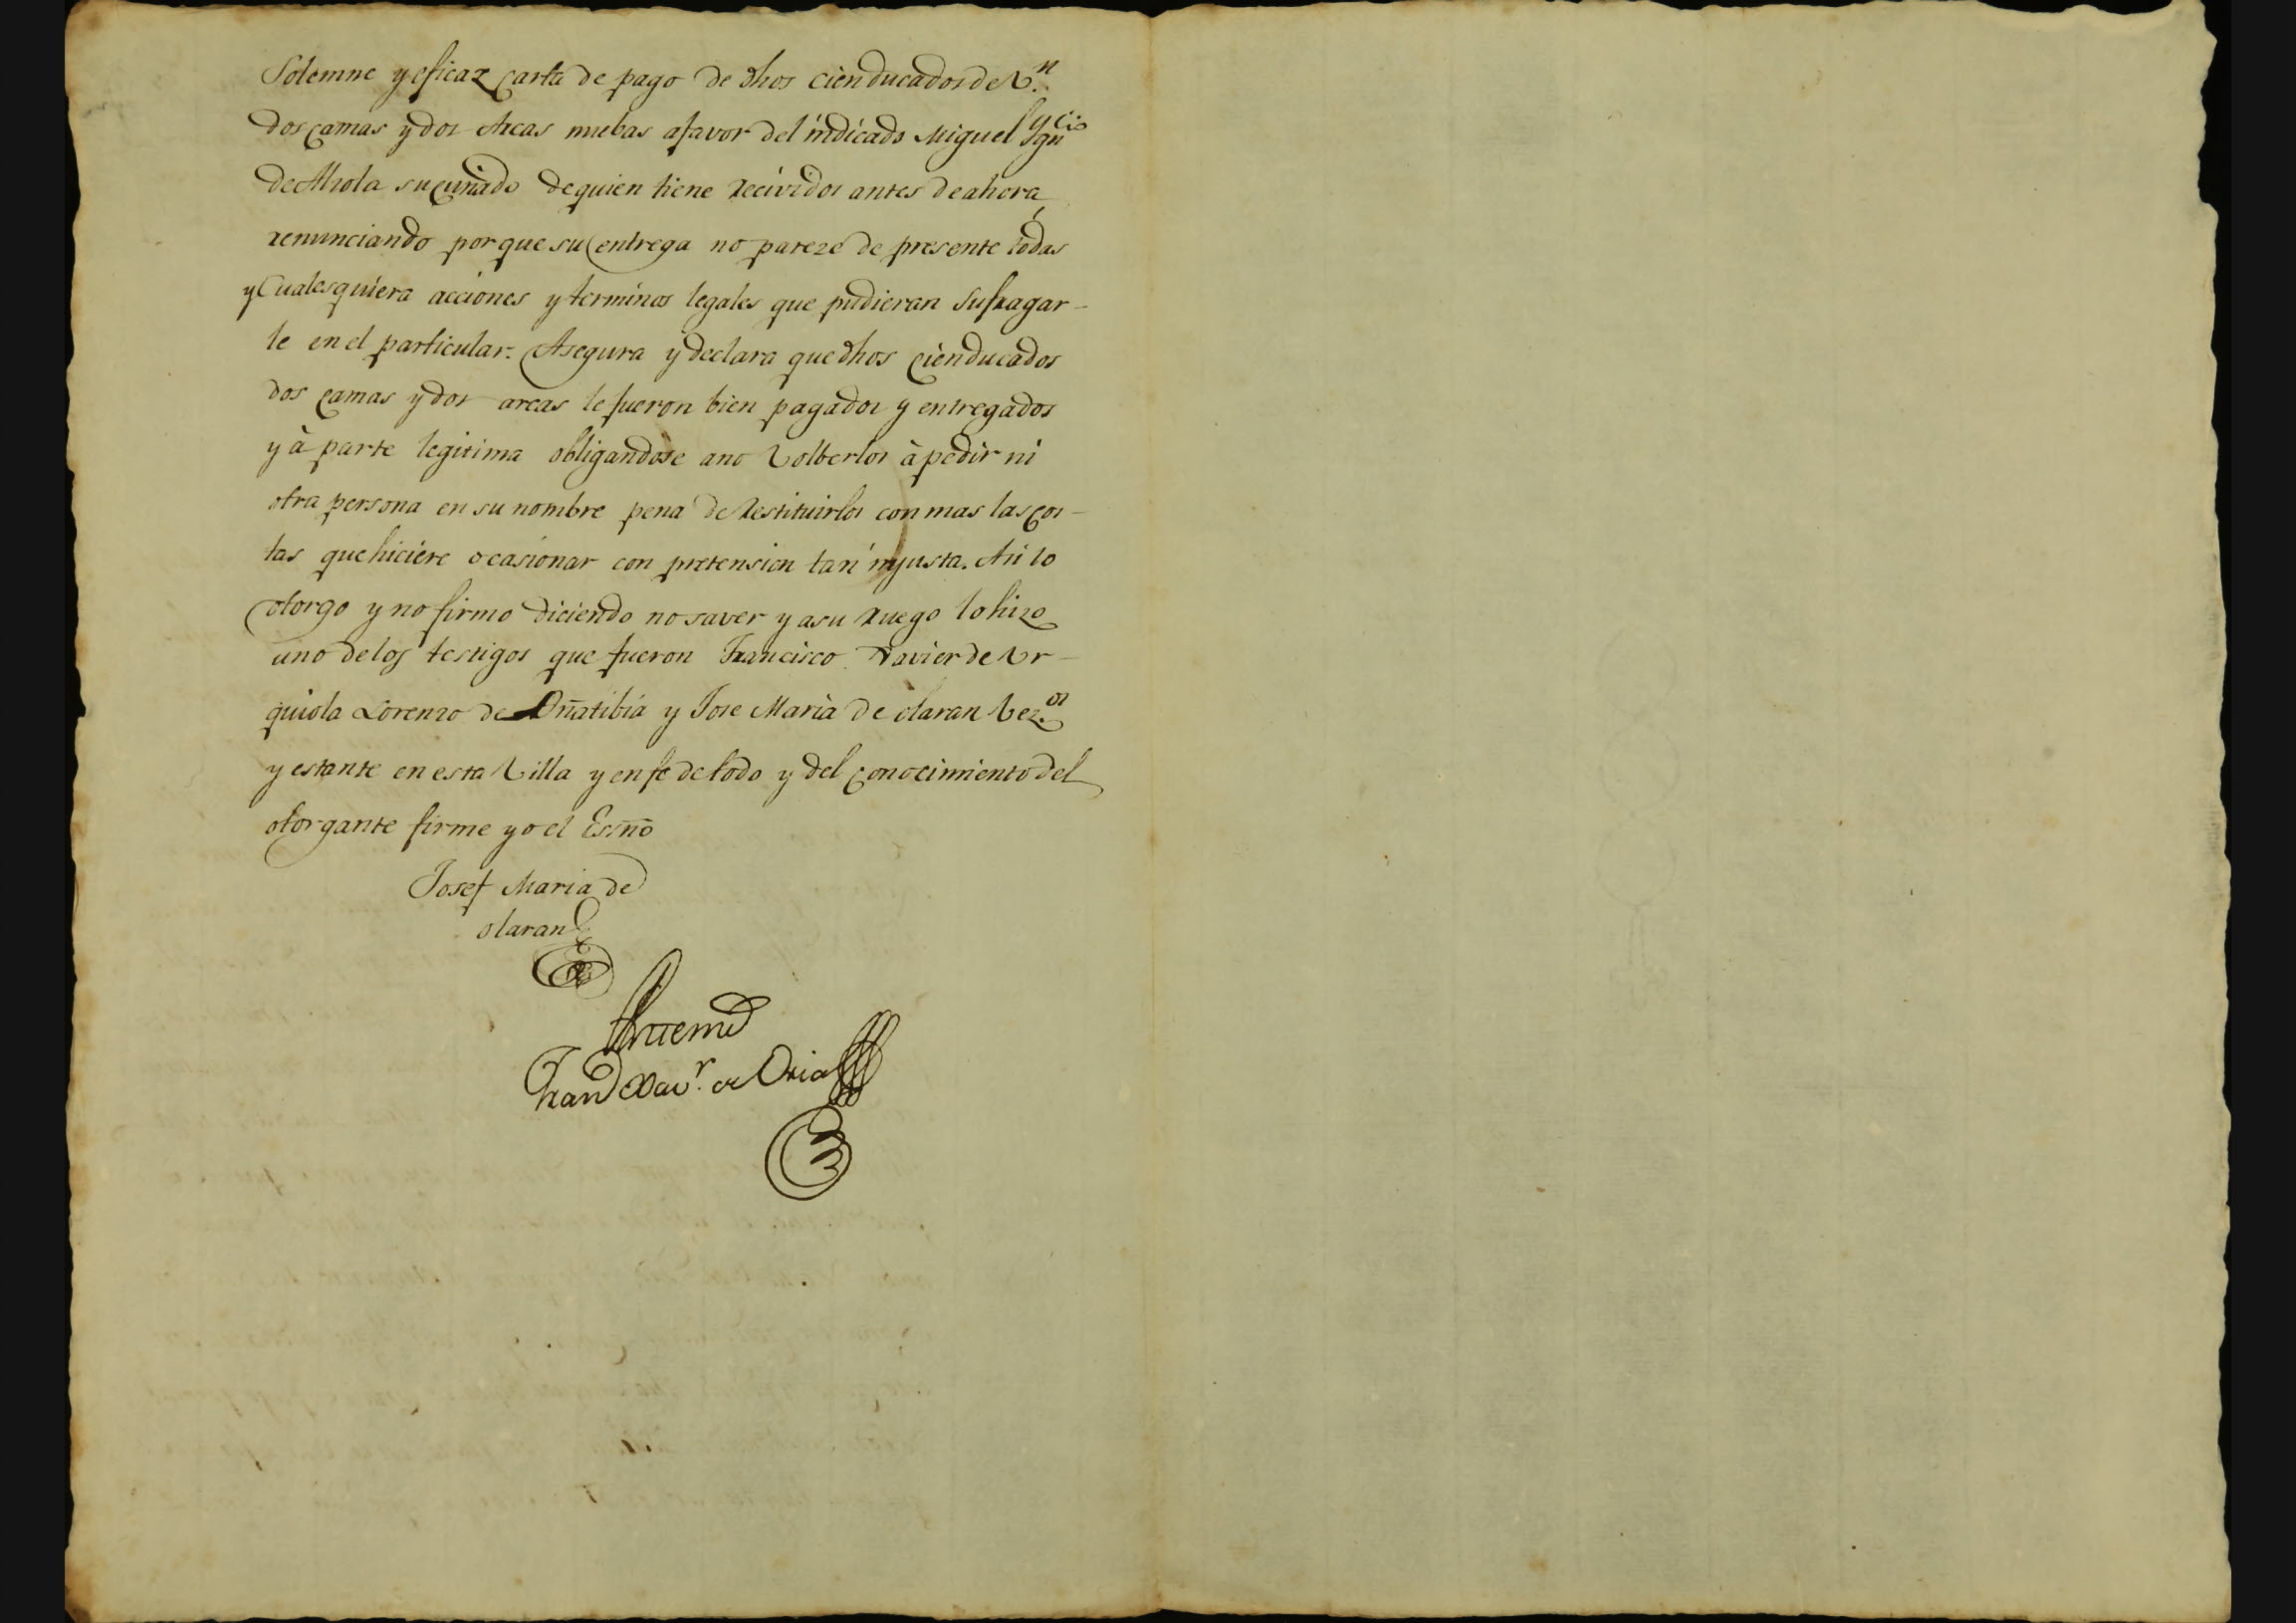 Solemne y eficaz carta de pago de dhos cien ducados de V.n
dos camas y dos Arcas nuebas a favor del indicado Miguel Ygn.cio
de Alzola su cuñado de quien tiene recividos antes de ahora
renunciando por que su entrega no pareze de presente todas
y cualesquiera acciones y terminos legales que pudieran sufragar-
le en el particular. Asegura y declara que dhos cien ducados
dos camas y dos arcas le fueron bien pagados y entregados
y à parte legitima obligandose a no volberlos à pedir ni
otra persona en su nombre pena de restituirlos con mas las cos-
tas que hiciere ocasionar con pretension tan injusta. Asi lo
otorgo y no firmo diciendo no saver y a su ruego lo hizo
uno de los testigos que fueron Francisco Xavier de Ur-
quiola Lorenzo de Oñatibia y Jose Maria de olaran vez.os
y estante en esta villa y en fe de todo y del conocimiento del
otorgante firme yo el Essño
Josef Maria de
olaran
Antemi
Fran.co Xav.r de Oria